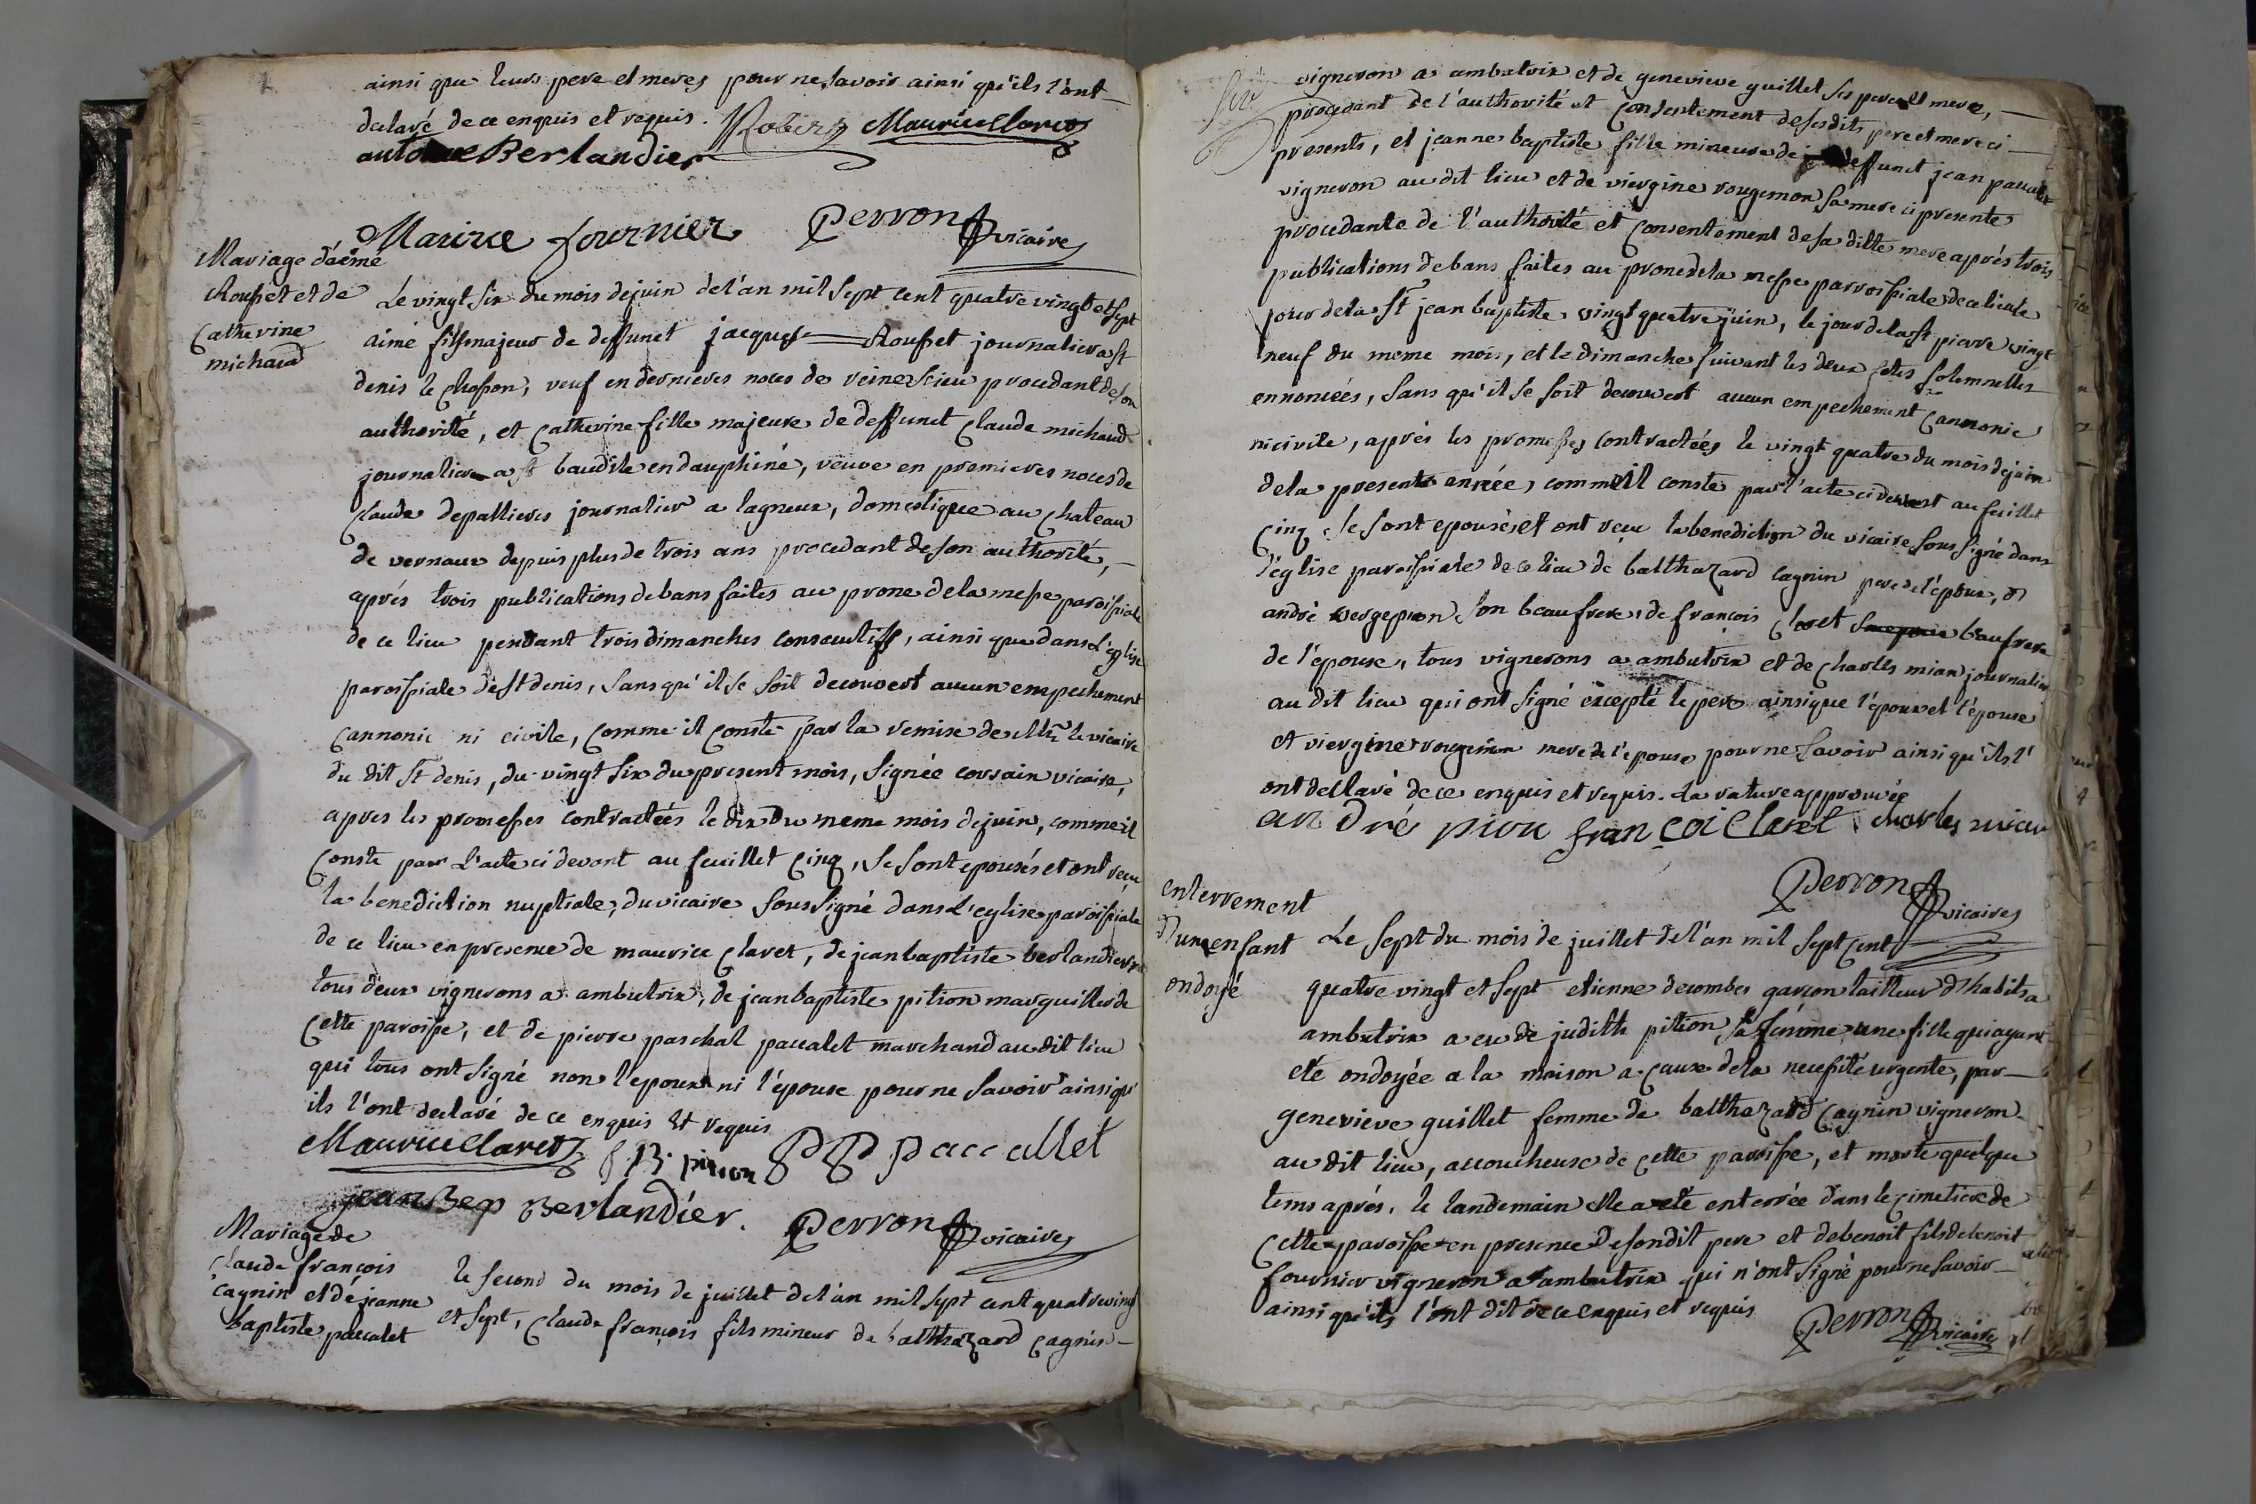 ainsi que leurs pere et meres pour ne savoir ainsi qu'ils l'ont
declaré de ce enquis et requis. Robin Maurice Claret
antoine Berlandier
Maurice fournier Perron vicaire
Mariage d'aimé
Rousset et de
Catherine
michaud
Le vingt six du mois de juin de l'an mil sept cent quatre vingt et sept
aimé fils majeur de deffunct jacques Rousset journalier a st
denis le Chosson, veuf en dernieres noces de reine Scieu procedant de son
authorité, et Catherine fille majeure de deffunct Claude michaud
journalier a st baudile en dauphiné, veuve en premieres noces de
Claude depallieres journalier a lagneux, domestique au chateau
de vernaux depuis plus de trois ans procedant de son authorité,
aprés trois publications de bans faites au prone de la messe paroissiale
de ce lieu pendant trois dimanches consecutifs, ainsi que dans l'eglise
paroissiale de st denis, sans qu'il se soit decouvert aucun empechement
cannonic ni civile, comme il conste par la remise de Mr le vicaire
du dit st denis, du vingt six du present mois, signée corsain vicaire,
apres les promesses contractées le dix du meme mois de juin, comme il
conste par l'acte ci devant au feuillet cinq, se sont epousés et ont reçu
la benediction nuptiale, du vicaire soussigné dans l'eglise paroissiale
de ce lieu en presence de maurice Claret, de jean baptiste berlandier
tous deux vignerons a ambutrix, de jean baptiste pition marguillier de
cette paroisse, et de pierre paschal paccalet marchand au dit lieu
qui tous ont signé non l'epoux ni l'épouse pour ne savoir ainsi qu'
ils l'ont declaré de ce enquis et requis
Maurice Claret J B. pition P P paccallet
jean Bap Berlandiér. Perron vicaire
Mariage de
Claude françois
cagnin et de jeanne
baptiste paccalet
le second du mois de juillet de l'an mil sept cent quatre vingt
et sept, Claude françois fils mineur de balthazard cagnin
vigneron a ambutrix et de genevieve guillet ses pere et mere,
procedant de l'authorité et consentement de ses dits pere et mere ci
presents, et jeanne baptiste fille mineure de deffunct jean paccalet
vigneron au dit lieu et de viergine rougemon sa mere ci presente
procedante de l'authorité et consentement de sa ditte mere aprés trois
publications de bans faites au prone de la messe parroissiale de ce lieu le
jour de la st jean baptiste vingt quatre juin, le jour de la st pierre vingt
neuf du meme mois, et le dimanche suivant les deux fetes solemnelles
ennoncées, sans qu'il se soit decouvert aucun empechement cannonic
ni civile, aprés les promesses contractées le vingt quatre du mois de juin
de la presente année, comme il conste par l'acte ci devant au feuillet
cinq. se sont epousés et ont reçu la benediction du vicaire soussigné dans
l'église paroissiale de ce lieu de balthazard cagnin pere de l'époux, d'
andré son beau frere, de françois Claret beaufrere
de l'épouse, tous vignerons a ambutrix et de Charles mian journalier
au dit lieu qui ont signé excepté le pere ainsi que l'époux et l'épouse
et viergine rougemon mere de l'epouse pour ne savoir ainsi qu'ils l'
ont declaré de ce enquis et requis. la rature approuvée
an dré pion françoi Claret charles mian
Perron vicaire
enterrement
d'un enfant
ondoyé
Le sept du mois de juillet de l'an mil sept cent
quatre vingt et sept etienne decombes garçon tailleur d'habits a
ambutrix a eu de judith pition sa femme une fille qui ayant
eté ondoyée a la maison a cause de la necessité urgente, par
genevieve guillet femme de balthazard Cagnin vigneron
au dit lieu, accoucheuse de cette paroisse, et morte quelque
tems aprés. le landemain elle a eté enterrée dans le cimetiere de
cette paroisse en presence de son dit pere et de benoit fils de benoit
fournier vigneron a ambutrix qui n'ont signé pour ne savoir
ainsi qu'ils l'ont dit de ce enquis et requis
Perron vicaire